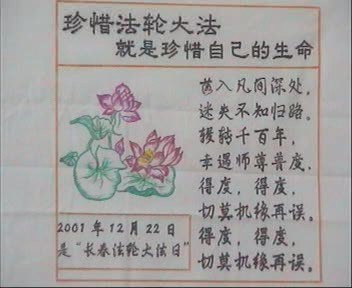 珍惜法轮大法
就是珍惜自己的生命
落入凡间深处，
迷失不知归路。
辗转千百年，
幸遇师尊普度，
得度，得度，
切莫机缘再误。
得度，得度，
切莫机缘再误。
2001年12月22日
是“长春法轮大法日”